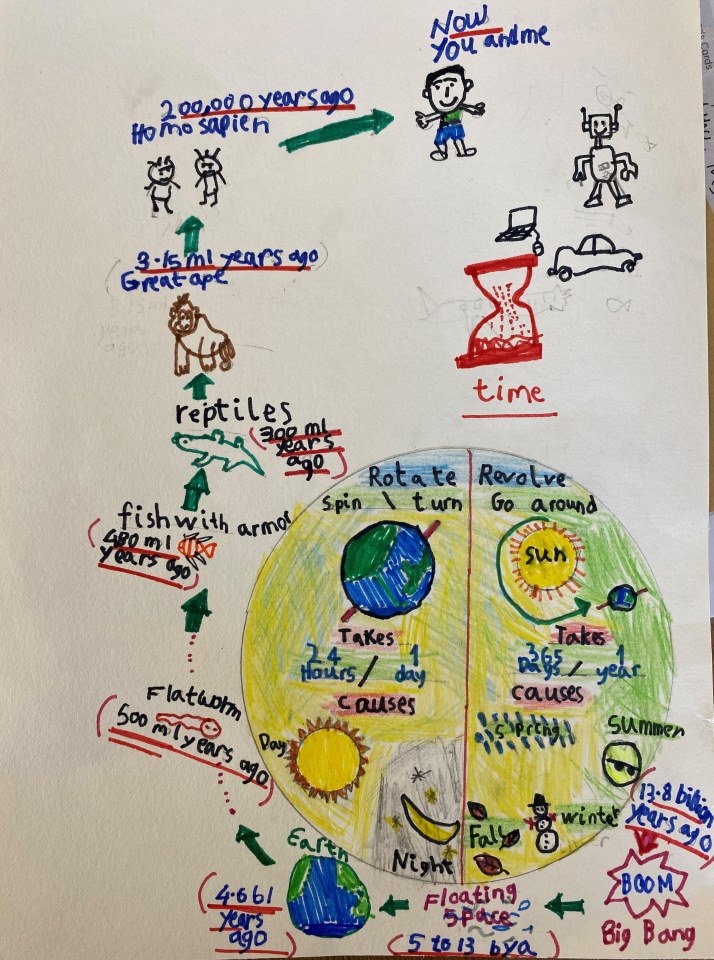 Now
You and me
200,000 years ago
Homo sapien
3.15 ml years ago
Great ape
time
reptiles
(300 ml
years
ago)
fish with armor
(480 ml
years ago)
Flatworm
(500 ml years ago)
Rotate
Spin \ turn
Takes
24 / 1
Hours day
Causes
Day
Night
Revolve
Go around
sun
Takes
365 / 1
Days year
Causes
Spring
Summer
Fall
winter
(13.8 billion
years ago)
BOOM
Big Bang
Floating
Space
(5 to 13 bya)
Earth
(4.6 bl
years
ago)